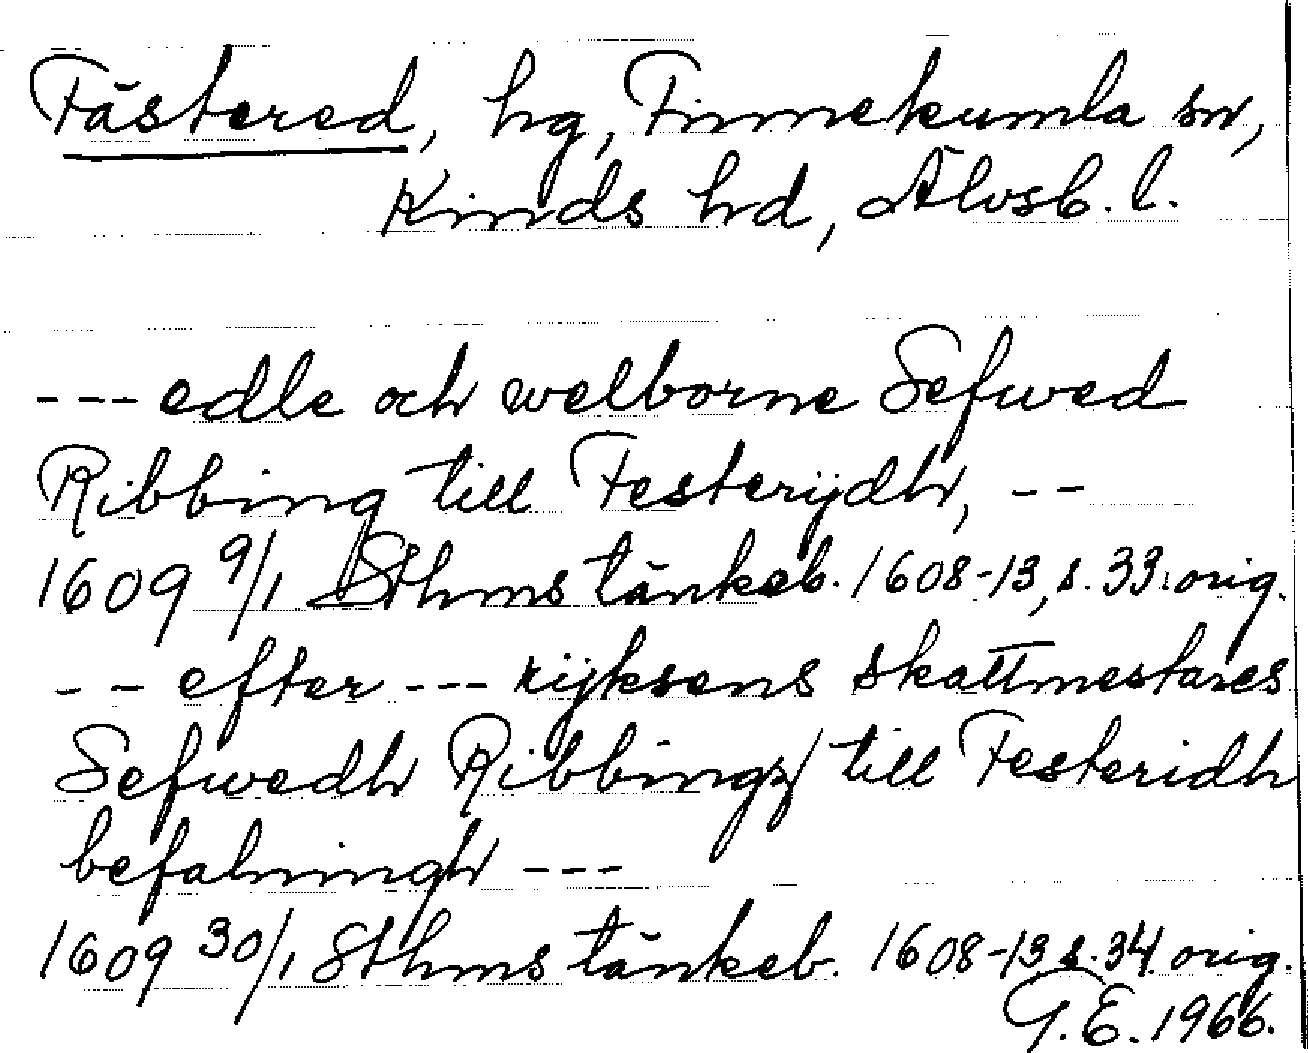 Fästered, hg, Finnekumla sn,
Kinds hd, Älvsb. l.
--- edle och welborne Sefwed
Ribbing till Festerijdh, --
1609 9/1 Sthms tänkeb. 1608-13, s. 33. orig.
-- efter --- rijksens skattmestares
Sefwedh Ribbingz till Festeridh
befalningh ---
1609 30/1 Sthms tänkeb. 1608-13 s. 34. orig.
G.E. 1966.